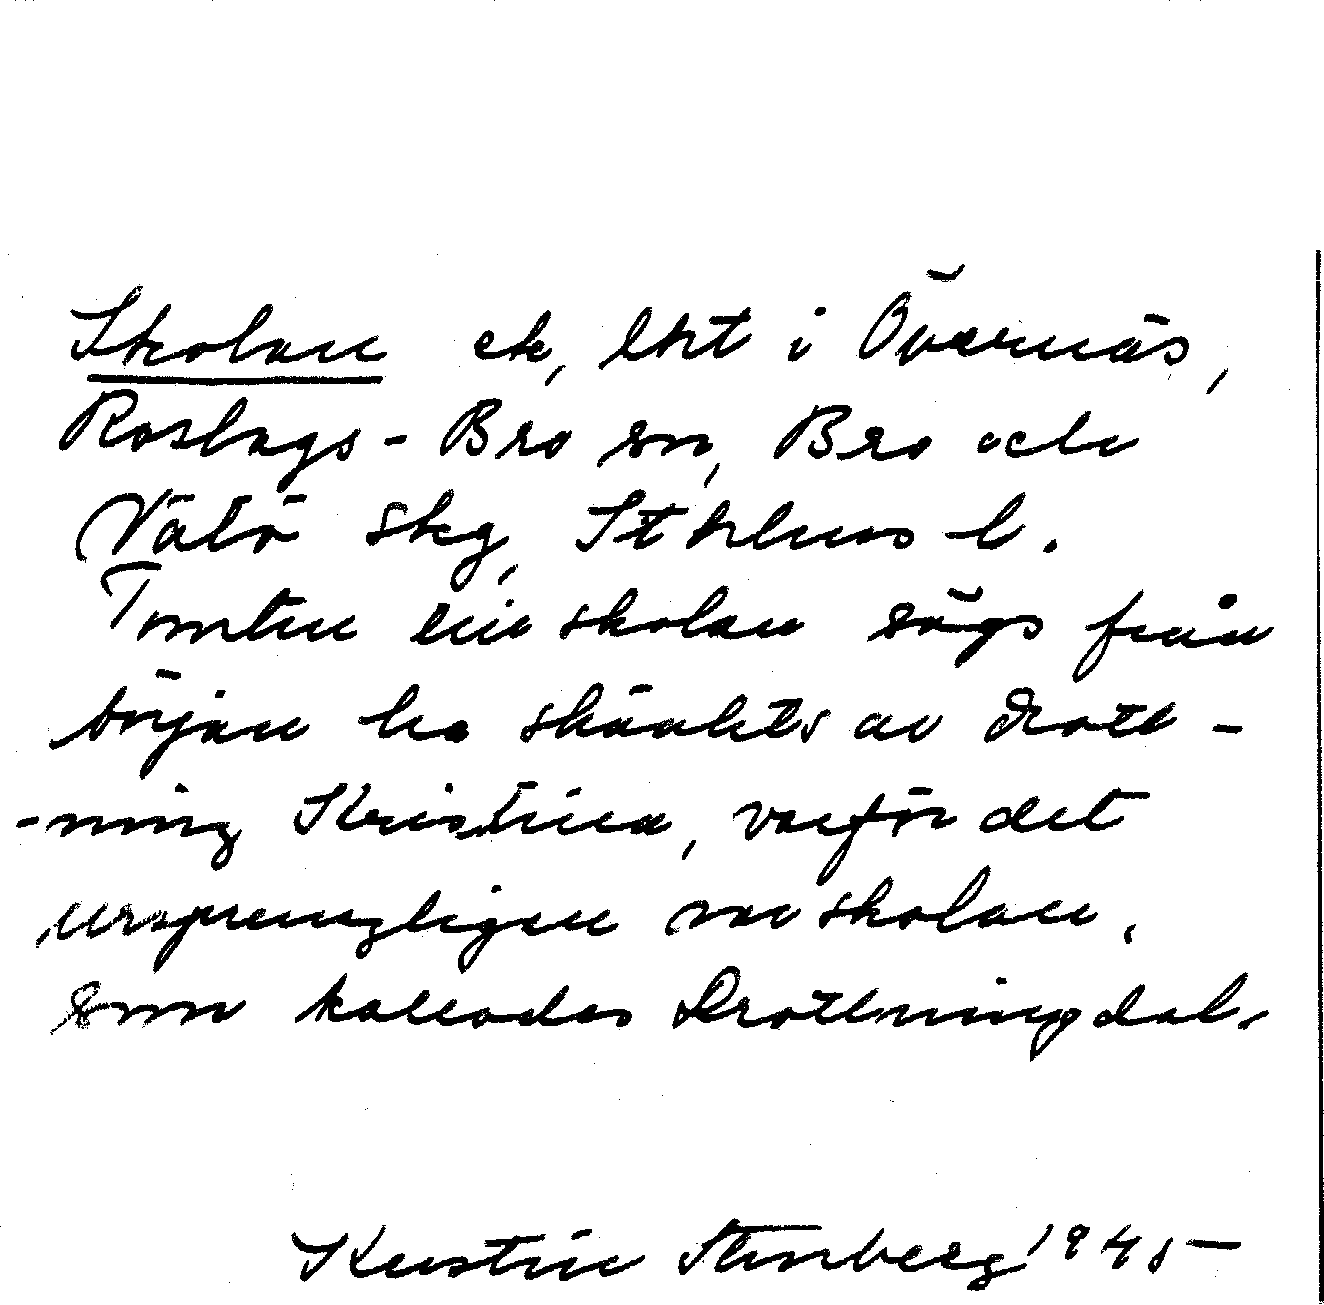 Skolan ek, lht i Övernäs,
Roslags-Bro sn, Bro och
Vätö skg, Sthlms l.
Tomten till skolan sägs från
början ha skänkts av drott-
-ning Kristina, varför det
ursprungligen var skolan,
som kallades Drottningdal.
Kerstin Stenberg 1945